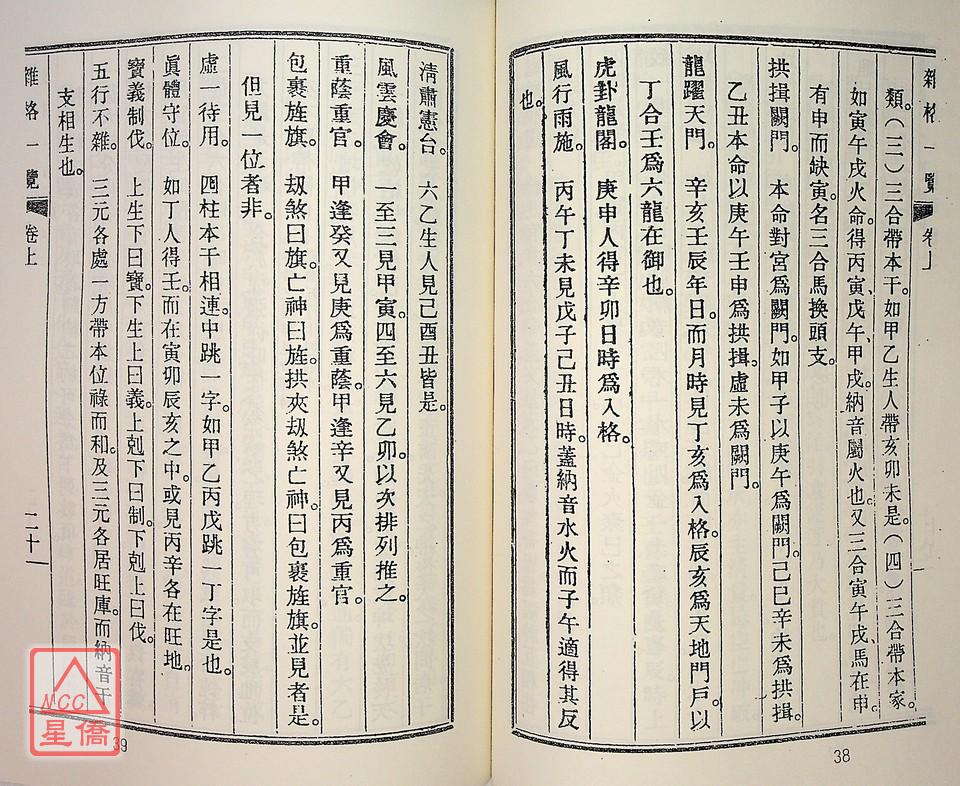 雜格一覽 卷上
類。(三)三合帶本干。如甲乙生人帶亥卯未是。(四)三合帶本家。
如寅午戌火命。得丙寅、戊午、甲戌。納音屬火也。又三合寅午戌、馬在申。
有申而缺寅。名三合馬換頭支。
拱揖闕門。 本命對宮為闕門。如甲子以庚午為闕門。己巳辛未為拱揖。
乙丑本命以庚午壬申為拱揖。虛未為闕門。
龍躍天門。 辛亥壬辰年日。而月時見丁亥為入格。辰亥為天地門戶。以
丁合壬為六龍在御也。
虎卦龍閣。 庚申人得辛卯日時為入格。
風行雨施。 丙午丁未見戊子己丑日時。蓋納音水火而子午適得其反
也。
38
清肅憲台。 六乙生人見己酉丑皆是。
風雲慶會。 一至三見甲寅。四至六見乙卯。以次排列推之。
重蔭重官。 甲逢癸又見庚為重蔭。甲逢辛又見丙為重官。
包裹旌旗。 刼煞曰旗。亡神曰旌。拱夾刼煞亡神。曰包裹旌旗。並見者是。
但見一位者非。
虛一待用。 四柱本干相連。中跳一字。如甲乙丙戊跳一丁字是也。
眞體守位。 如丁人得壬。而在寅卯辰亥之中。或見丙辛各在旺地。
寶義制伐。 上生下曰寶。下生上曰義。上剋下曰制。下剋上曰伐。
五行不雜。 三元各處一方帶本位祿而和。及三元各居旺庫。而納音干
支相生也。
雜格一覽 卷上
二十一
39
MCC
星僑